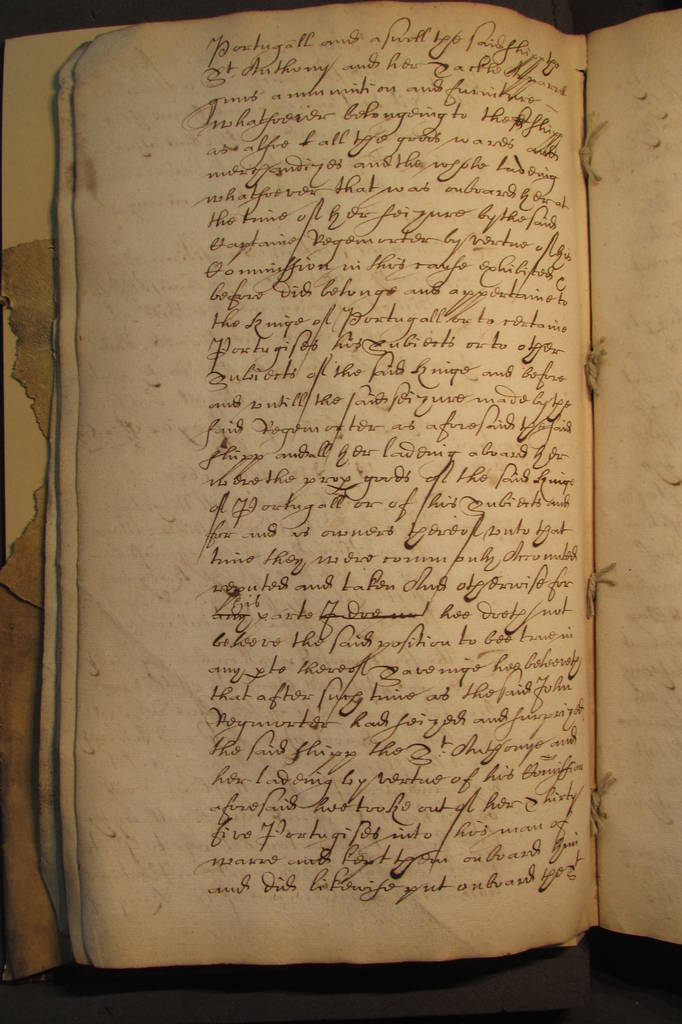 Portugall and aswell the said shipp the
St Anthony and her Tackle Apparell
guns ammunition and furniture
whatsoever belongeing to the shipp
as alsoe all the goods wares and
merchandizes and the whole ladeing
whatsoever that was onboard her at
the time of her seizure by the said
Captaine Regemorter by vertue of his
Commission in this cause exhibited
before did belonge and appertaine to
the Kinge of Portugall or to certaine
Portugises his Subiects or to other
Subiects of the said Kinge and before
and untill the said seizure made by the
said Regemorter as aforesaid the said
shipp and all her ladeing aboard her
were the prop goods of the said Kinge
of Portugall or of his Subiects and
for and as owners thereof unto that
time they were commonly Accounted
reputed and taken And otherwise for
his parte I doe not hee doeth not
beleeve the said position to bee true in
any pte thereof Saveinge hee beleeveth
that after such time as the said John
Regmorter had seized and surprized
the said shipp the St. Anthonye and
her ladeing by vertue of his Comission
aforesaid hee tooke out of her Thirty
five Portugises into his man of
warre and kept them onboard him
and did likewise put onboard the St